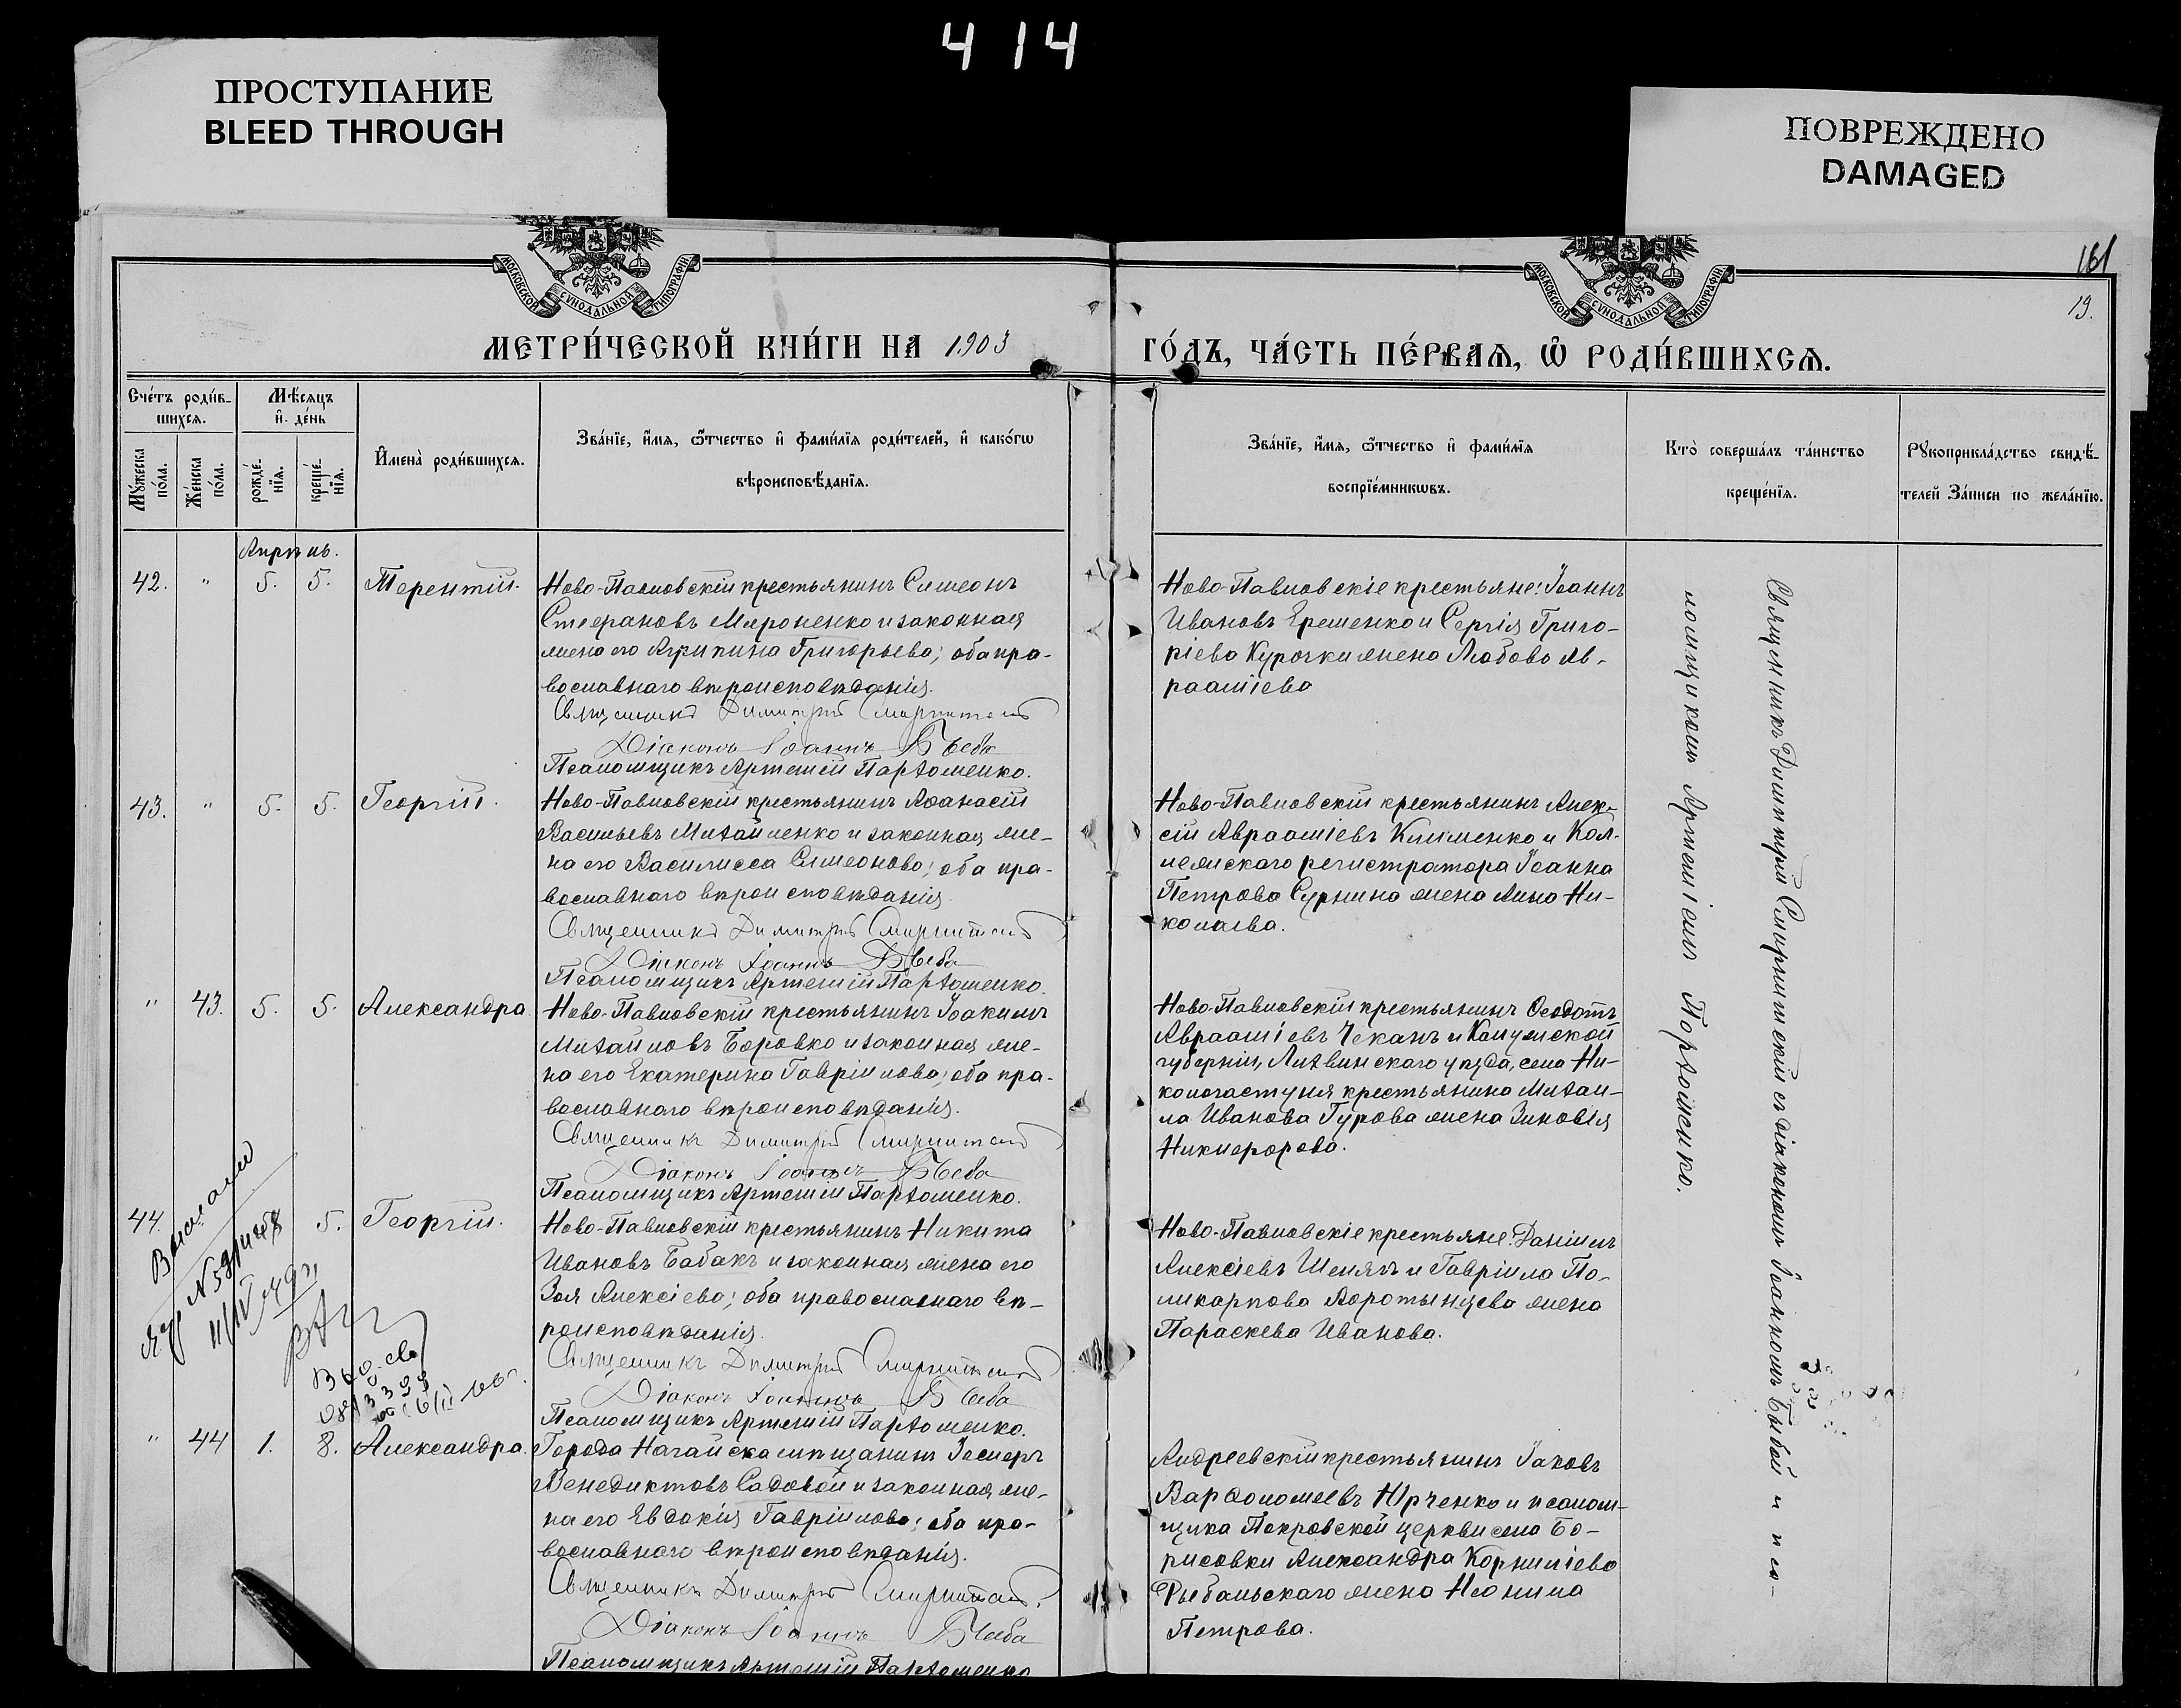 414
ПРОСТУПАНИЕ
BLEED THROUGH
ПОВРЕЖДЕНО
DAMAGED
161
19.
МОСКОВСКОЙ СѴНОДАЛЬНОЙ ТИПОГРАФІИ
МОСКОВСКОЙ СѴНОДАЛЬНОЙ ТИПОГРАФІИ
МЕТРИ́ЧЕСКОЙ КНИ́ГИ НА 1903
ГО́ДЪ, ЧА́СТЬ ПЕ́РВАЯ, Ѡ҆ РОДИ́ВШИХСЯ.
Сче́тъ роди́в-
шихся.
Мѣ́сяцъ
и҆ де́нь
Му́жеска
по́ла.
Же́нска
по́ла.
рожде́-
нїя.
креще́-
нїя.
И҆мена̀ роди́вшихся.
Зва́нїе, и҆́мя, ѻ҆́тчество и҆ фами́лїя роди́телей, и҆ како́гѡ
вѣроисповѣ́данїя.
Зва́нїе, и҆́мя, ѻ҆́тчество и҆ фами́лїя
воспрїе́мникѡвъ.
Кто̀ соверша́лъ та́инство
креще́нїя.
Рꙋкоприкла́дство свидѣ́-
телей За́писи по жела́нїю.
Апрѣль.
42. " 5. 5. Терентій.
Ново-Павловскій крестьянинъ Симеонъ
Стефановъ Мироненко и законная
жена его Агрипина Григорьева; оба пра-
вославнаго вѣроисповѣданія.
Священникъ Димитрій
Діаконъ Іоаннъ
Псаломщикъ Артемій Пархоменко.
Ново-Павловскіе крестьяне: Іоаннъ
Ивановъ Ерешенко и Сергія Григо-
ріева Курочки жена Любовь Ав-
рааміева
43. " 5. 5. Георгій.
Ново-Павловскій крестьянинъ Аѳанасій
Васильевъ Михайленко и законная же-
на его Василисса Симеонова; оба пра-
вославнаго вѣроисповѣданія.
Священникъ Димитрій
Діаконъ Іоаннъ
Псаломщикъ Артемій Пархоменко.
Ново-Павловскій крестьянинъ Алек-
сій Авраамiевъ Клименко и Кол-
лежскаго регистратора Іоанна
Петрова Сурнина жена Анна Ни-
колаева.
" 43. 5. 5. Александра
Ново-Павловскій крестьянинъ Іоакимъ
Михайловъ Боровко и законная же-
на его Екатерина Гавріилова; оба пра-
вославнаго вѣроисповѣданія.
Священникъ Димитрій
Діаконъ Іоаннъ
Псаломщикъ Артемій Пархоменко.
Ново-Павловскій крестьянинъ Ѳеодотъ
Авраамiевъ Чеканъ и Калужской
губерніи, Лихвинскаго уѣзда, села Ни-
крестьянина Михаи-
ла Иванова Гурова жена Зиновія
Никифорова.
44. 5. Георгій.
Ново-Павловскій крестьянинъ Никита
Ивановъ Бабакъ и законная жена его
Зоя Алексіева; оба православнаго вѣ-
роисповѣданія.
Священникъ Димитрій
Діаконъ Іоаннъ
Псаломщикъ Артемій Пархоменко.
Ново-Павловскіе крестьяне: Даніилъ
Алексіевъ и Гавріила По-
ликарпова Воротынцева жена
Параскева Иванова.
" 44 1. 8. Александра.
Города Ногайска мѣщанинъ Іосифъ
Венедиктовъ Садовой и законная же-
на его Евдокія Гавріилова; оба пра-
вославнаго вѣроисповѣданія.
Священникъ Димитрій
Діаконъ Іоаннъ
Псаломщикъ Артемій Пархоменко
Андреевскій крестьянинъ Іаковъ
Варѳоломеевъ Юрченко и псалом-
щика Покровской церкви села Бо-
рисовки Александра Корниліева
Рыбальскаго жена Неонила
Петрова.
Священникъ Димитрій съ діакономъ Іоанномъ и пса-
ломщикомъ Артеміемъ Пархоменко.